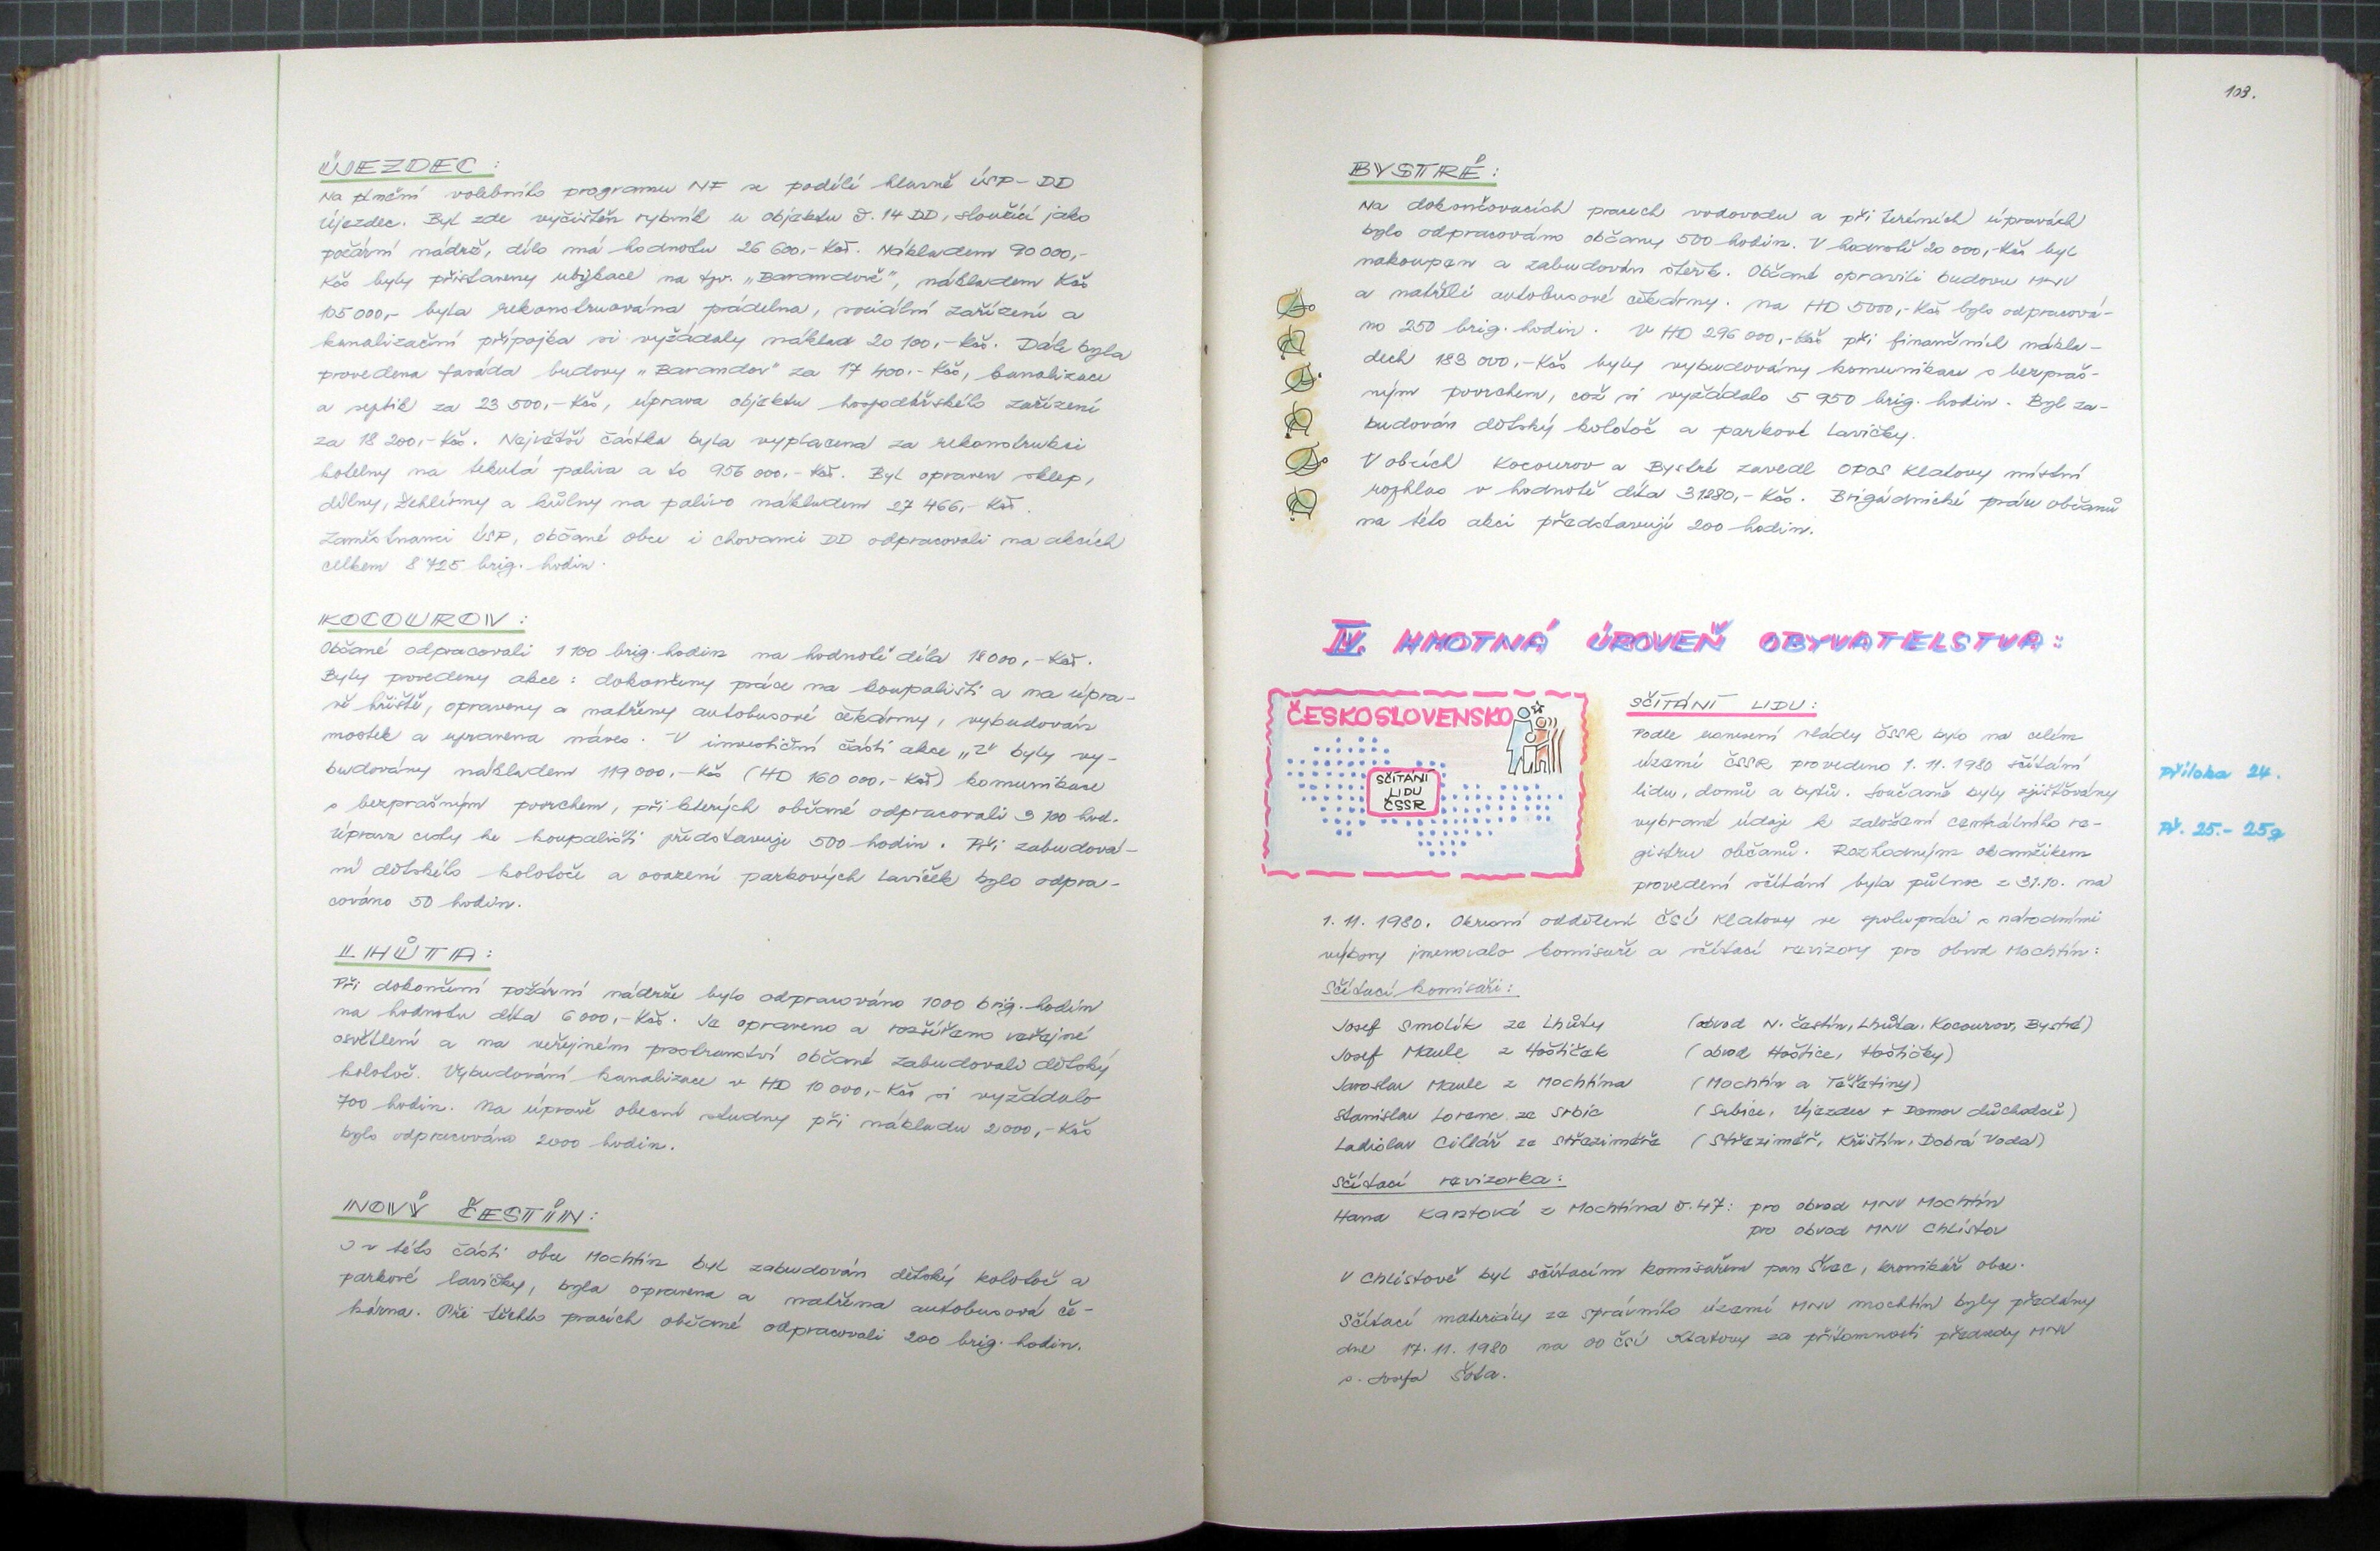 ÚJEZDEC:
Na plnění volebního programu NF se podílí hlavně ÚSP-DD
Újezdec. Byl zde vyčištěn rybník u objektu č. 14 DD, sloužící jako
požární nádrž, dílo má hodnotu 26 600,- Kčs. Nákladem 90 000,-
Kčs byly přistaveny ubykace na tzv. „Barandově", nákladem Kčs
105 000,- byla rekonstruována prádelna, sociální zařízení a
kanalizační přípojka si vyžádaly náklad 20 100,- Kčs. Dále byla
provedena fasáda budovy „Barandov" za 17 400,- Kčs, kanalizace
a septik za 23 500,- Kčs, úprava objektu hospodářského zařízení
za 18 200,- Kčs. Největší částka byla vyplacena za rekonstrukci
kotelny na tekutá paliva a to 956 000,- Kčs. Byl opraven sklep,
dílny, žehlírny a kůlny na palivo nákladem 27 466,- Kčs.
Zaměstnanci ÚSP, občané obce i chovanci DD odpracovali na akcích
celkem 8 725 brig. hodin.
KOCOUROV:
Občané odpracovali 1 100 brig. hodin na hodnotě díla 18 000,- Kčs.
Byly provedeny akce: dokončeny práce na koupališti a na úpra-
vě hřiště, opraveny a natřeny autobusové čekárny, vybudován
mostek a upravena náves. V investiční části akce „Z" byly vy-
budovány nákladem 119 000,- Kčs (HD 160 000,- Kčs) komunikace
s bezprašným povrchem, při kterých občané odpracovali 3 100 hod.
Úprava cesty ke koupališti představuje 500 hodin. Při zabudová-
ní dětského kolotoče a osazení parkových laviček bylo odpra-
cováno 50 hodin.
LHŮTA:
Při dokončení požární nádrže bylo odpracováno 1000 brig. hodin
na hodnotu díla 6 000,- Kčs. Je opraveno a rozšířeno veřejné
osvětlení a na veřejném prostranství občané zabudovali dětský
kolotoč. Vybudování kanalizace v HD 10 000,- Kčs si vyžádalo
700 hodin. Na úpravě obecní studny při nákladu 2 000,- Kčs
bylo odpracováno 2000 hodin.
NOVÝ ČESTÍN:
I v této části obce Mochtín byl zabudován dětský kolotoč a
parkové lavičky, byla opravena a natřena autobusová če-
kárna. Při těchto pracích občané odpracovali 200 brig. hodin.
103.
BYSTRÉ:
Na dokončovacích pracech vodovodu a při terénních úpravách
bylo odpracováno občany 500 hodin. V hodnotě 20 000,- Kčs byl
nakoupen a zabudován štěrk. Občané opravili budovu MNV
a natřeli autobusové čekárny. Na HD 5000,- Kčs bylo odpracová-
no 250 brig. hodin. V HD 296 000,- Kčs při finančních nákla-
dech 183 000,- Kčs byly vybudovány komunikace s bezpraš-
ným povrchem, což si vyžádalo 5 950 brig. hodin. Byl za-
budován dětský kolotoč a parkové lavičky.
V obcích Kocourov a Bystré zavedl OPOS Klatovy místní
rozhlas v hodnotě díla 31280,- Kčs. Brigádnické práce občanů
na této akci představují 200 hodin.
IV. HMOTNÁ ÚROVEŇ OBYVATELSTVA:
ČESKOSLOVENSKO
SČÍTÁNÍ
LIDU
ČSSR
SČÍTÁNÍ LIDU:
Podle usnesení vlády ČSSR bylo na celém
území ČSSR provedeno 1. 11. 1980 sčítání
lidu, domů a bytů. Současně byly zjišťovány
vybrané údaje k založení centrálního re-
gistru občanů. Rozhodným okamžikem
provedení sčítání byla půlnoc z 31.10. na
1. 11. 1980. Okresní oddělení ČSÚ Klatovy ve spolupráci s národními
výbory jmenovalo komisaře a sčítací revizory pro obvod Mochtín:
příloha 24.
Př. 25.- 25g
Sčítací komisaři:
Josef Smolík ze Lhůty (obvod N. Čestín, Lhůta, Kocourov, Bystré)
Josef Maule z Hoštiček (obvod Hoštice, Hoštičky)
Jaroslav Maule z Mochtína (Mochtín a Těšetiny)
Stanislav Lorenc ze Srbic (Srbice, Újezdec + Domov důchodců)
Ladislav Cillář ze Střeziměře (Střeziměř, Křištín, Dobrá Voda)
Sčítací revizorka:
Hana Kantová z Mochtína č. 47: pro obvod MNV Mochtín
pro obvod MNV Chlistov
V Chlistově byl sčítacím komisařem pan Švec, kronikář obce.
Sčítací materiály ze správního území MNV Mochtín byly předány
dne 17. 11. 1980 na OO ČSÚ Klatovy za přítomnosti předsedy MNV
s. Josefa Šota.